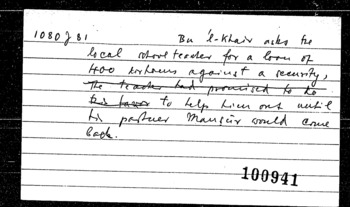 1080 J 81 Bu 'l-Khair asks the
local school teacher for a loan of
400 dirhams against a security,
The teacher had promised to do
this favor to help him out until
his partner Mansūr would come
back.
100941